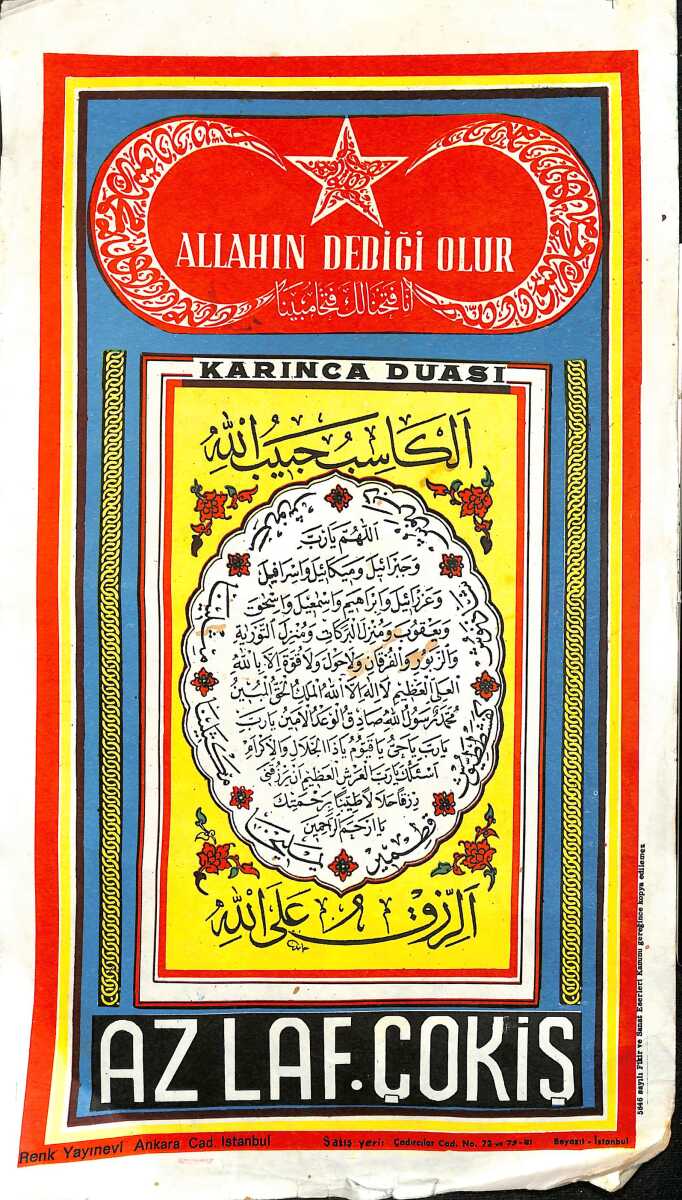 ALLAHIN DEDİĞİ OLUR
انا فتحنا لك فتحا مبينا
KARINCA DUASI
الكاسب حبيب الله
اللهم يارب
وجبرائيل وميكائيل واسرافيل
وعزرائيل وابراهيم واسمعيل واسحق
ويعقوب ومنزل البركات ومنزل التورية
والزبور والفرقان ولاحول ولاقوة الا بالله
العلى العظيم لااله الا الله الملك الحق المبين
محمد رسول الله صادق الوعد الامين يارب
يارب ياحى ياقيوم ياذا الجلال والاكرام
اسئلك يارب العرش العظيم ان يرزقنى
رزقا حلالا طيبا برحمتك
يا ارحم الراحمين
يمليخا
مكثلينا
مثلينا
مرنوش
دبرنوش
شاذنوش
كفشططيوش
قطمير
الرزق على الله
AZ LAF. ÇOK İŞ
5846 sayılı Fikir ve Sanat Eserleri Kanunu gereğince kopya edilemez
Renk Yayınevi Ankara Cad. İstanbul Satış yeri: Çadırcılar Cad. No. 22 ve 79-81 Beyazıt - İstanbul